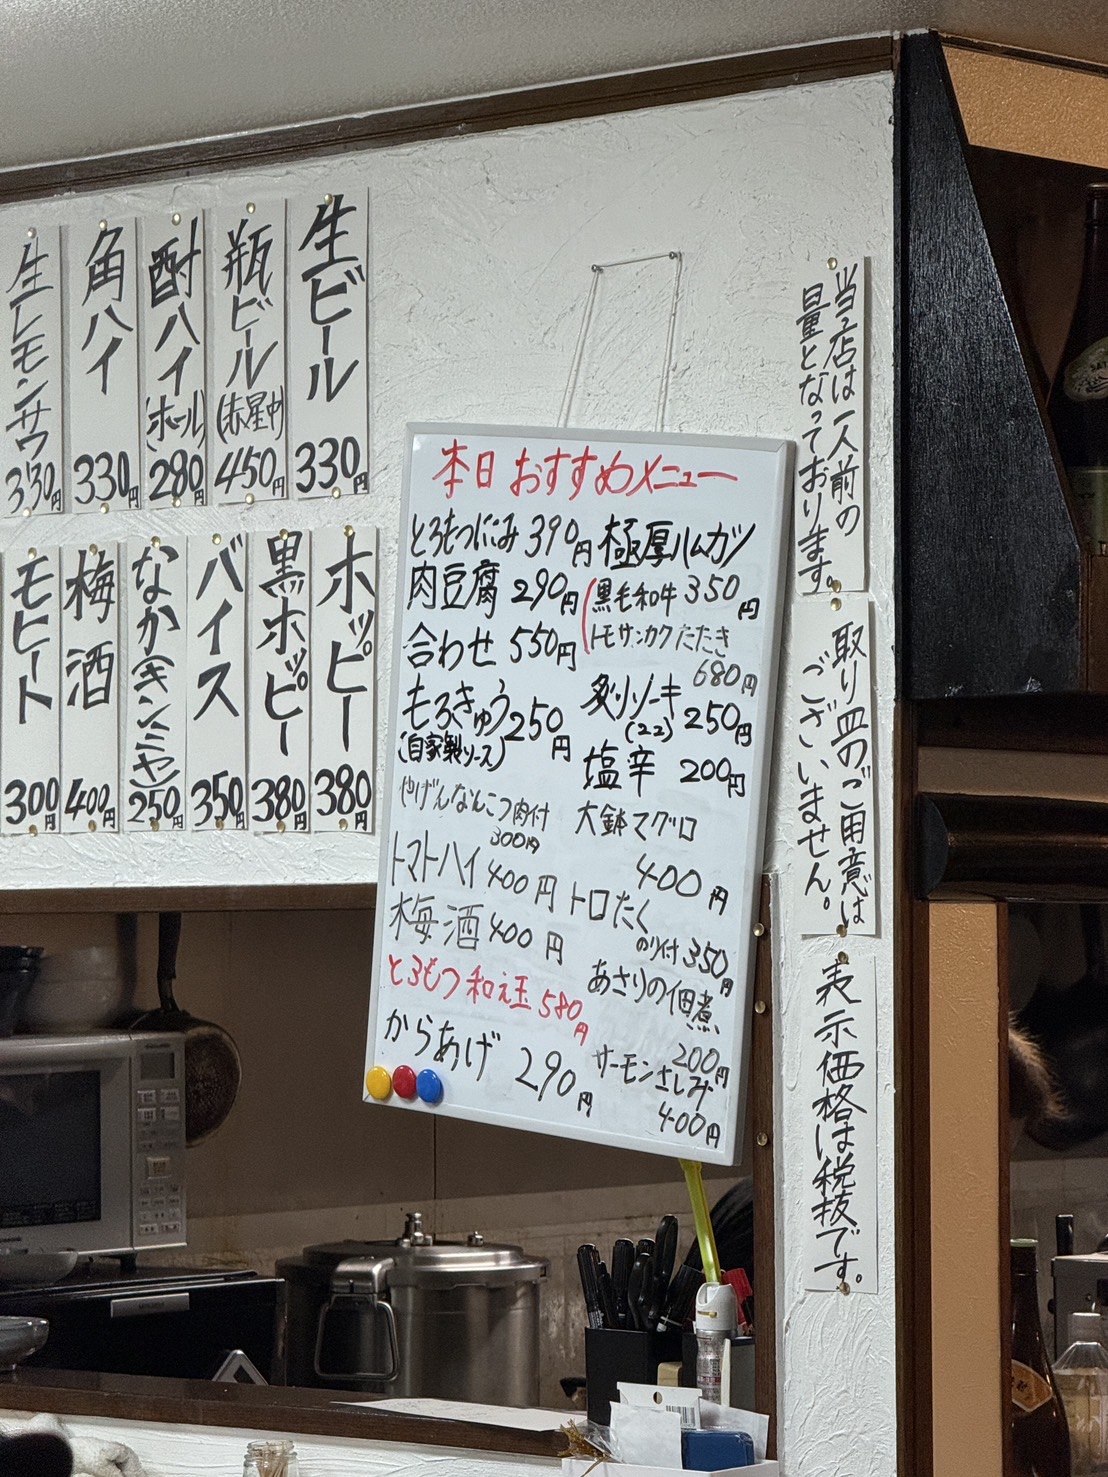 生ビール
330円
瓶ビール
(赤星中)
450円
酎ハイ
(ホール)
280円
角ハイ
330円
生レモンサワ
330円
ホッピー
380円
黒ホッピー
380円
バイス
350円
なか(キンミヤ)
250円
梅酒
400円
モヒート
300円
本日おすすめメニュー
とろもつにこみ 390円
肉豆腐 290円
合わせ 550円
もろきゅう 250円
(自家製ソース)
やげんなんこつ肉付
300円
トマトハイ 400円
梅酒 400円
とろもつ和え玉 580円
からあげ 290円
極厚ハムカツ
350円
黒毛和牛
トモサンカクたたき
680円
炙りソーキ 250円
(22)
塩辛 200円
大鉢マグロ
400円
トロたく
のり付 350円
あさりの佃煮
200円
サーモンさしみ
400円
当店は一人前の
量となっております。
取り皿のご用意は
ございません。
表示価格は税抜です。